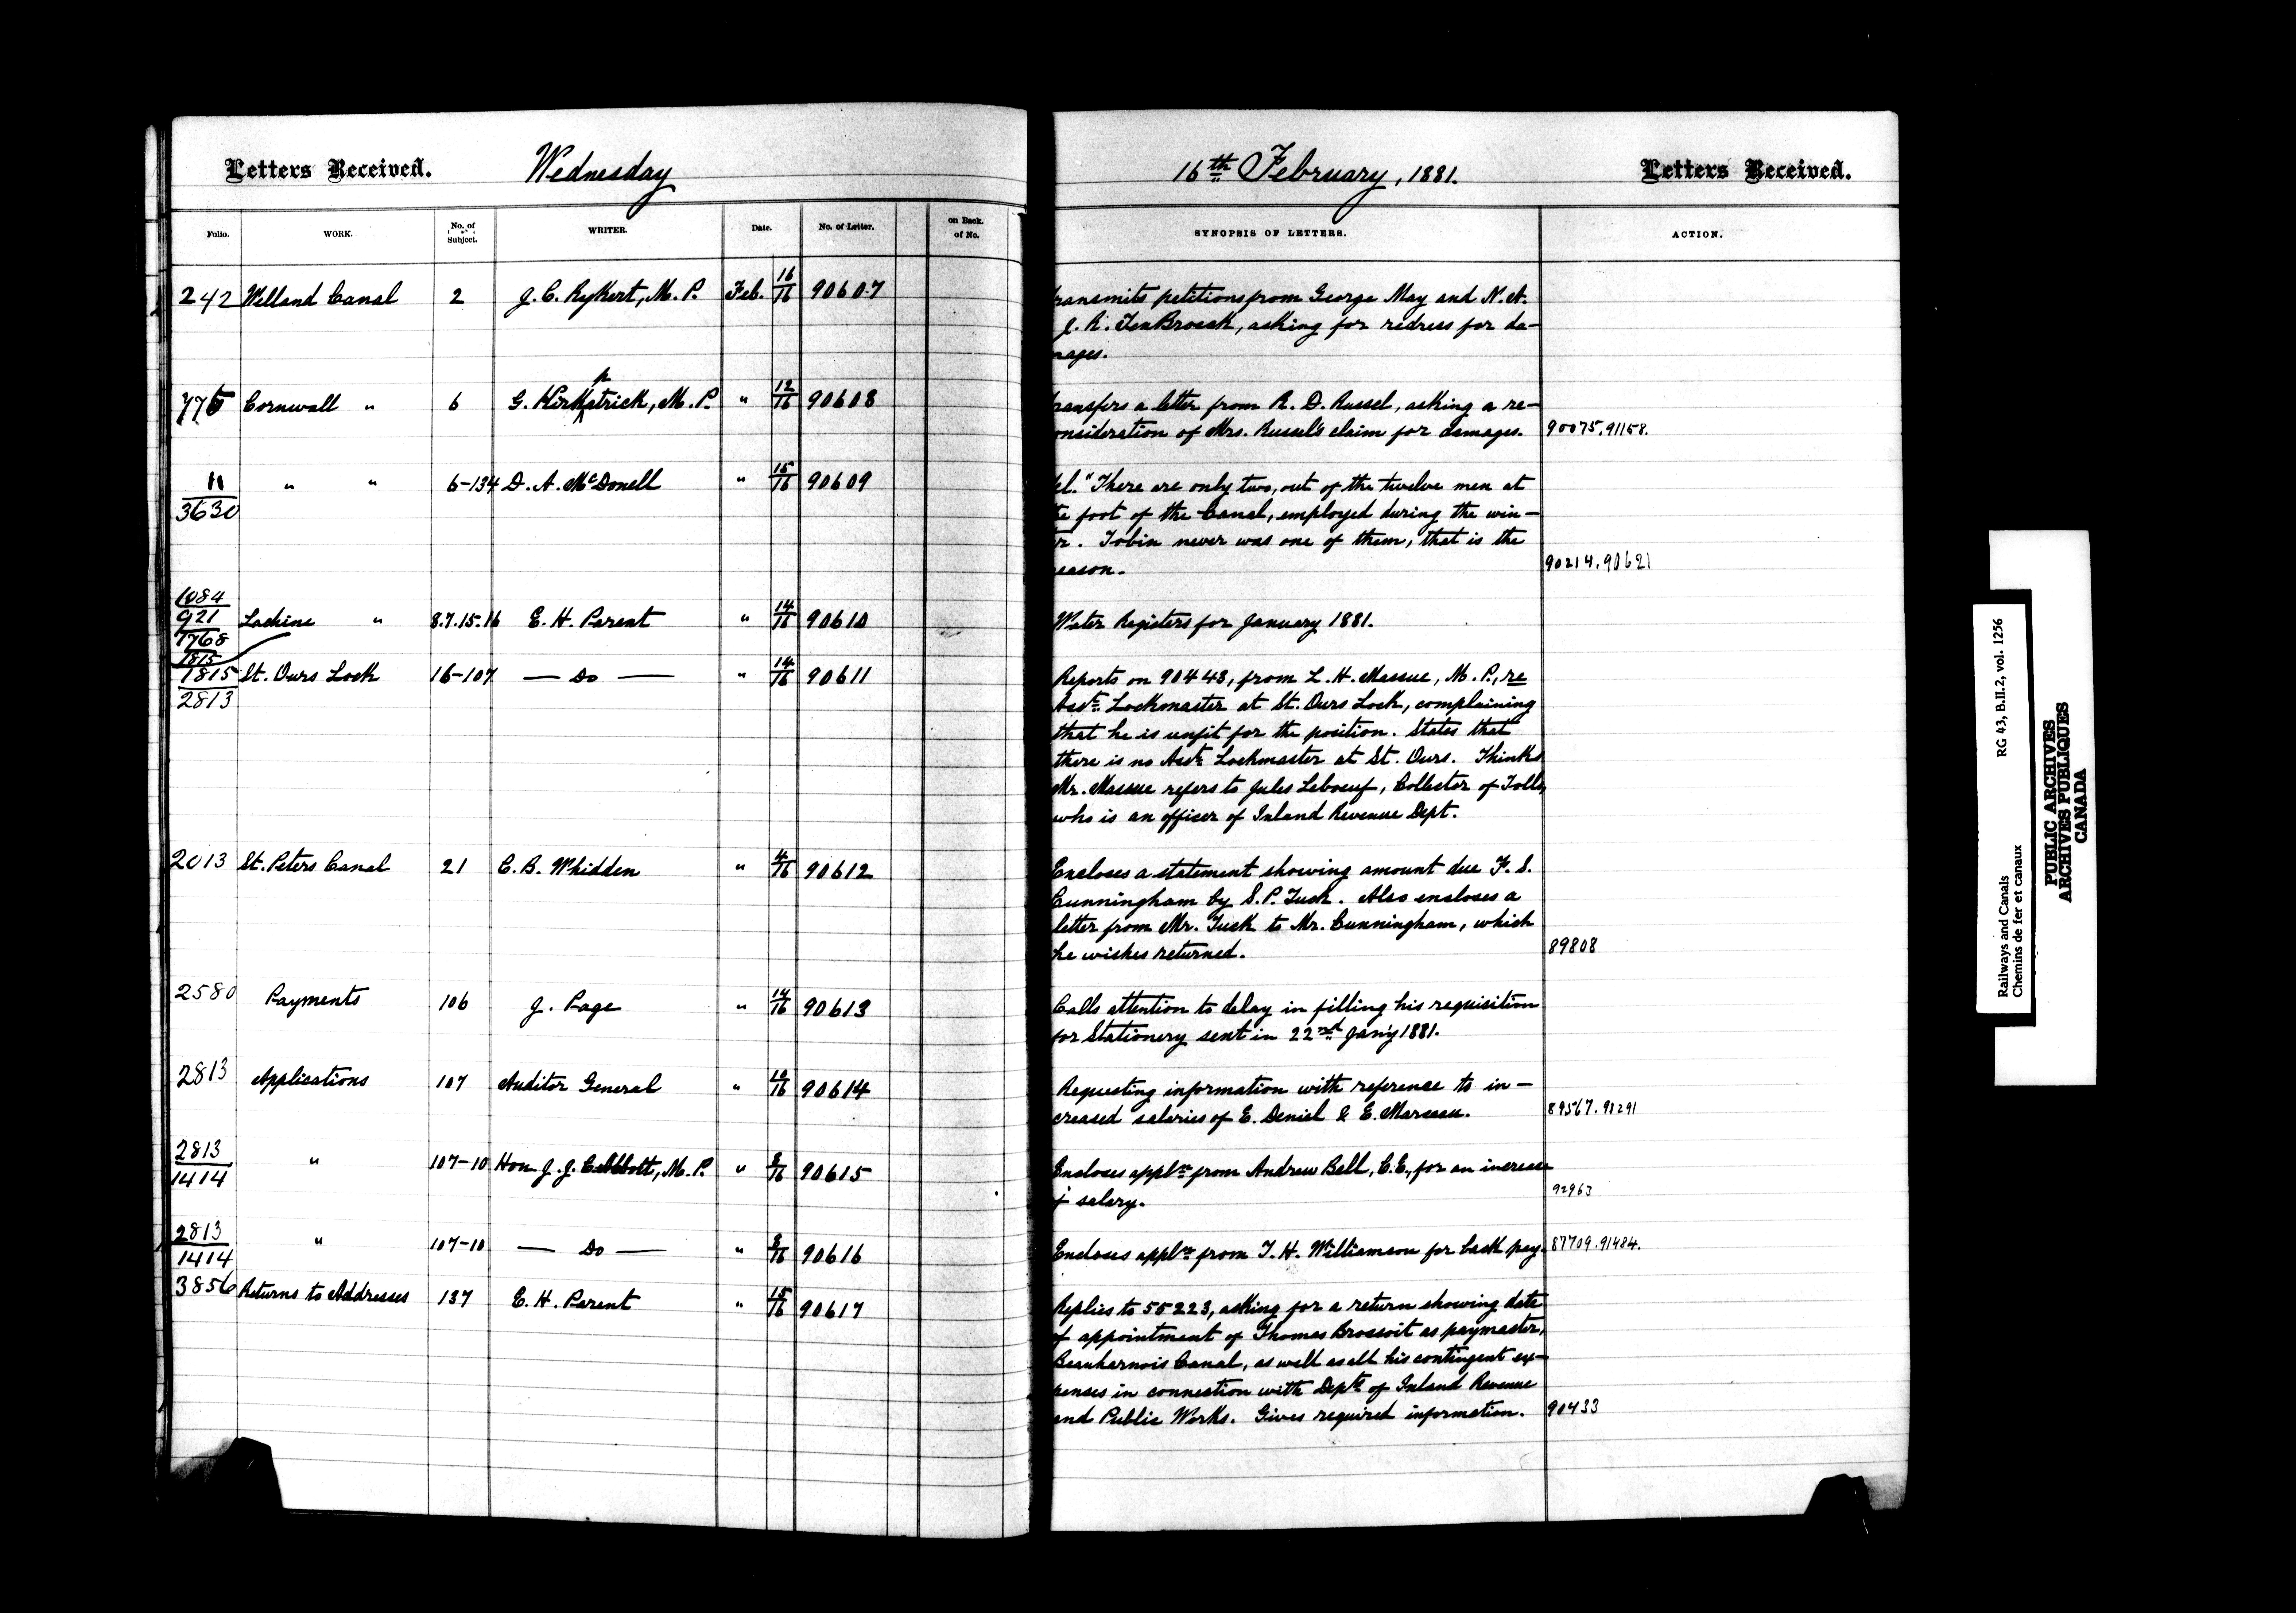 Letters Received. Wednesday 16th February, 1881. Letters Received.
Folio. WORK. No. of Subject. WRITER. Date. No. of Letter. on Back. of No. SYNOPSIS OF LETTERS. ACTION.
242 Welland Canal 2 J. C. Rykert, M. P. Feb. 16/16 90607 transmits petitions from George May and N. A.
J. R. TenBroeck, asking for redress for da-
mages.
Cornwall " 6 G. Kirkpatrick, M. P. " 12/16 90608 transfers a letter from R. D. Russel, asking a re-
onsideration of Mrs. Russel's claim for damages. 90075.91158.
11/3630 " " 6-134 D. A. McDonell " 15/16 90609 el. "There are only two, out of the twelve men at
te foot of the Canal, employed during the win-
er. Tobin never was one of them, that is the
eason. 90214.90621
1084/921/1768/1815 Lachine " 8.7.15.16 E. H. Parent " 14/16 90610 Water Registers for January 1881.
1815/2813 St. Ours Lock 16-107 — Do — " 14/16 90611 Reports on 90443, from L. H. Massue, M. P., re
Asst. Lockmaster at St. Ours Lock, complaining
that he is unfit for the position. States that
there is no Asst. Lockmaster at St. Ours. Thinks
Mr. Massue refers to Jules Leboeuf, Collector of Tolls,
who is an officer of Inland Revenue Dept.
2013 St. Peters Canal 21 C. B. Whidden " 4/16 90612 Encloses a statement showing amount due F. S.
Cunningham by S. P. Tuck. Also encloses a
letter from Mr. Tuck to Mr. Cunningham, which
he wishes returned. 89808
2580 Payments 106 J. Page " 14/16 90613 Calls attention to delay in filling his requisition
for Stationery sent in 22nd Jan'y 1881.
2813 Applications 107 Auditor General " /16 90614 Requesting information with reference to in-
creased salaries of E. Deniel & E. Marceau. 89567.91291
2813/1414 " 107-10 Hon J. J. C. Abbott, M. P. " 8/16 90615 Encloses appln from Andrew Bell, C. E., for an increase
of salary. 92963
2813/1414 " 107-10 — Do — " 8/16 90616 Encloses appln from T. H. Williamson for back pay. 87709.91484.
3856 Returns to Addresses 137 E. H. Parent " 15/16 90617 Replies to 55223, asking for a return showing date
of appointment of Thomas Brossoit as paymaster,
Beauharnois Canal, as well as all his contingent ex-
penses in connection with Depts of Inland Revenue
and Public Works. Gives required information. 90433
Railways and Canals RG 43, B.II.2, vol. 1256
Chemins de fer et canaux
PUBLIC ARCHIVES
ARCHIVES PUBLIQUES
CANADA